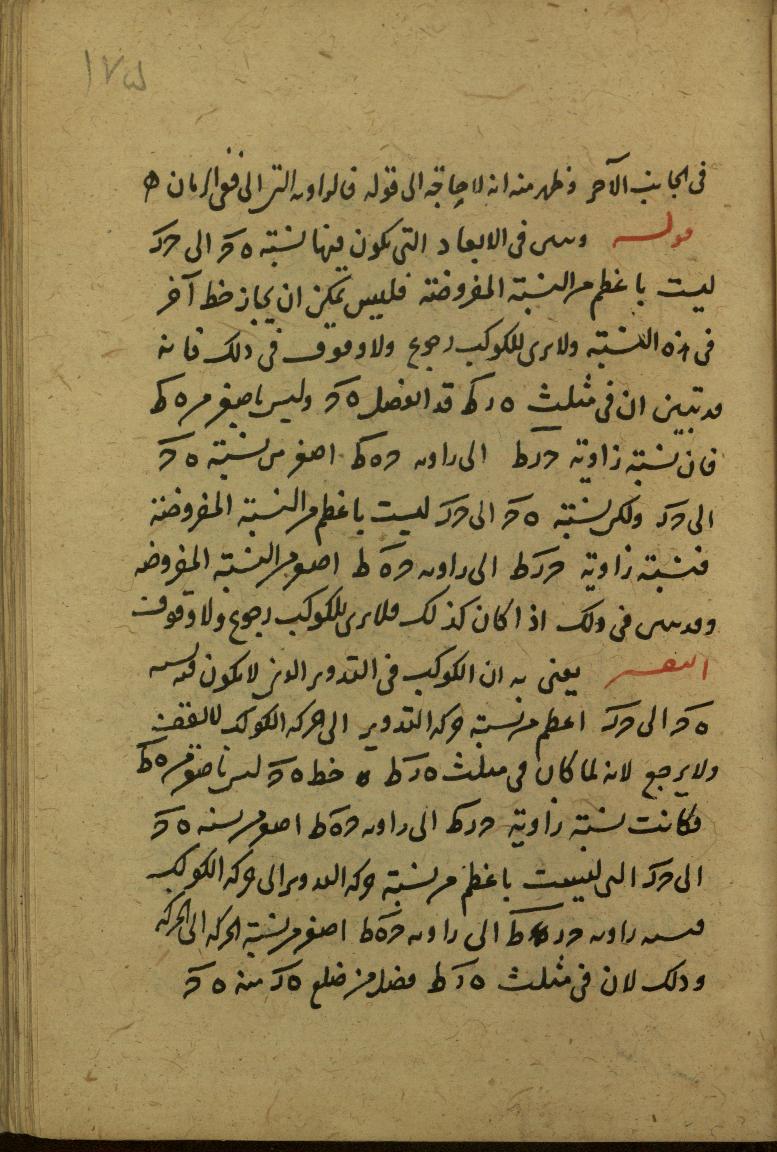 ١٧٥
فى الجانب الآخر و ظهر منه انه لا حاجة الى قوله فالزاوية التى الى
قوله و فى الابعاد التى يكون فيها نسبة ه ح الى ح د
ليست باعظم من النسبة المفروضة فليس يمكن ان يجاز خط آخر
فى هذه النسبة ولا يرى للكوكب رجوع ولا وقوف فى ذلك فانه
قد تبين ان فى مثلث ه د ط قد انفصل ه ح وليس باصغر من ه ط
فان نسبة زاوية ح د ط الى زاوية ح ه ط اصغر من نسبة ه ح
الى ح د ولكن نسبة ه ح الى ح د ليست باعظم من النسبة المفروضة
فنسبة زاوية ح د ط الى زاوية ح ه ط اصغر من النسبة المفروضة
وقد تبين فى ذلك اذا كان كذلك فلا يرى للكوكب رجوع ولا وقوف
التفسير يعنى به ان الكوكب فى التدوير الذى لا يكون فيه نسبة
ه ح الى ح د اعظم من نسبة حركة التدوير الى حركة الكوكب لا يقف
ولا يرجع لانه لما كان فى مثلث ه د ط خط ه ح ليس باصغر من ه ط
فكانت نسبة زاوية ح د ط الى زاوية ح ه ط اصغر من نسبة ه ح
الى ح د التى ليست باعظم من نسبة حركة التدوير الى حركة الكوكب
فنسبة زاوية ح د ط الى زاوية ح ه ط اصغر من نسبة الحركة الى الحركة
وذلك لان فى مثلث ه د ط فضل من ضلع ه د منه ه ح